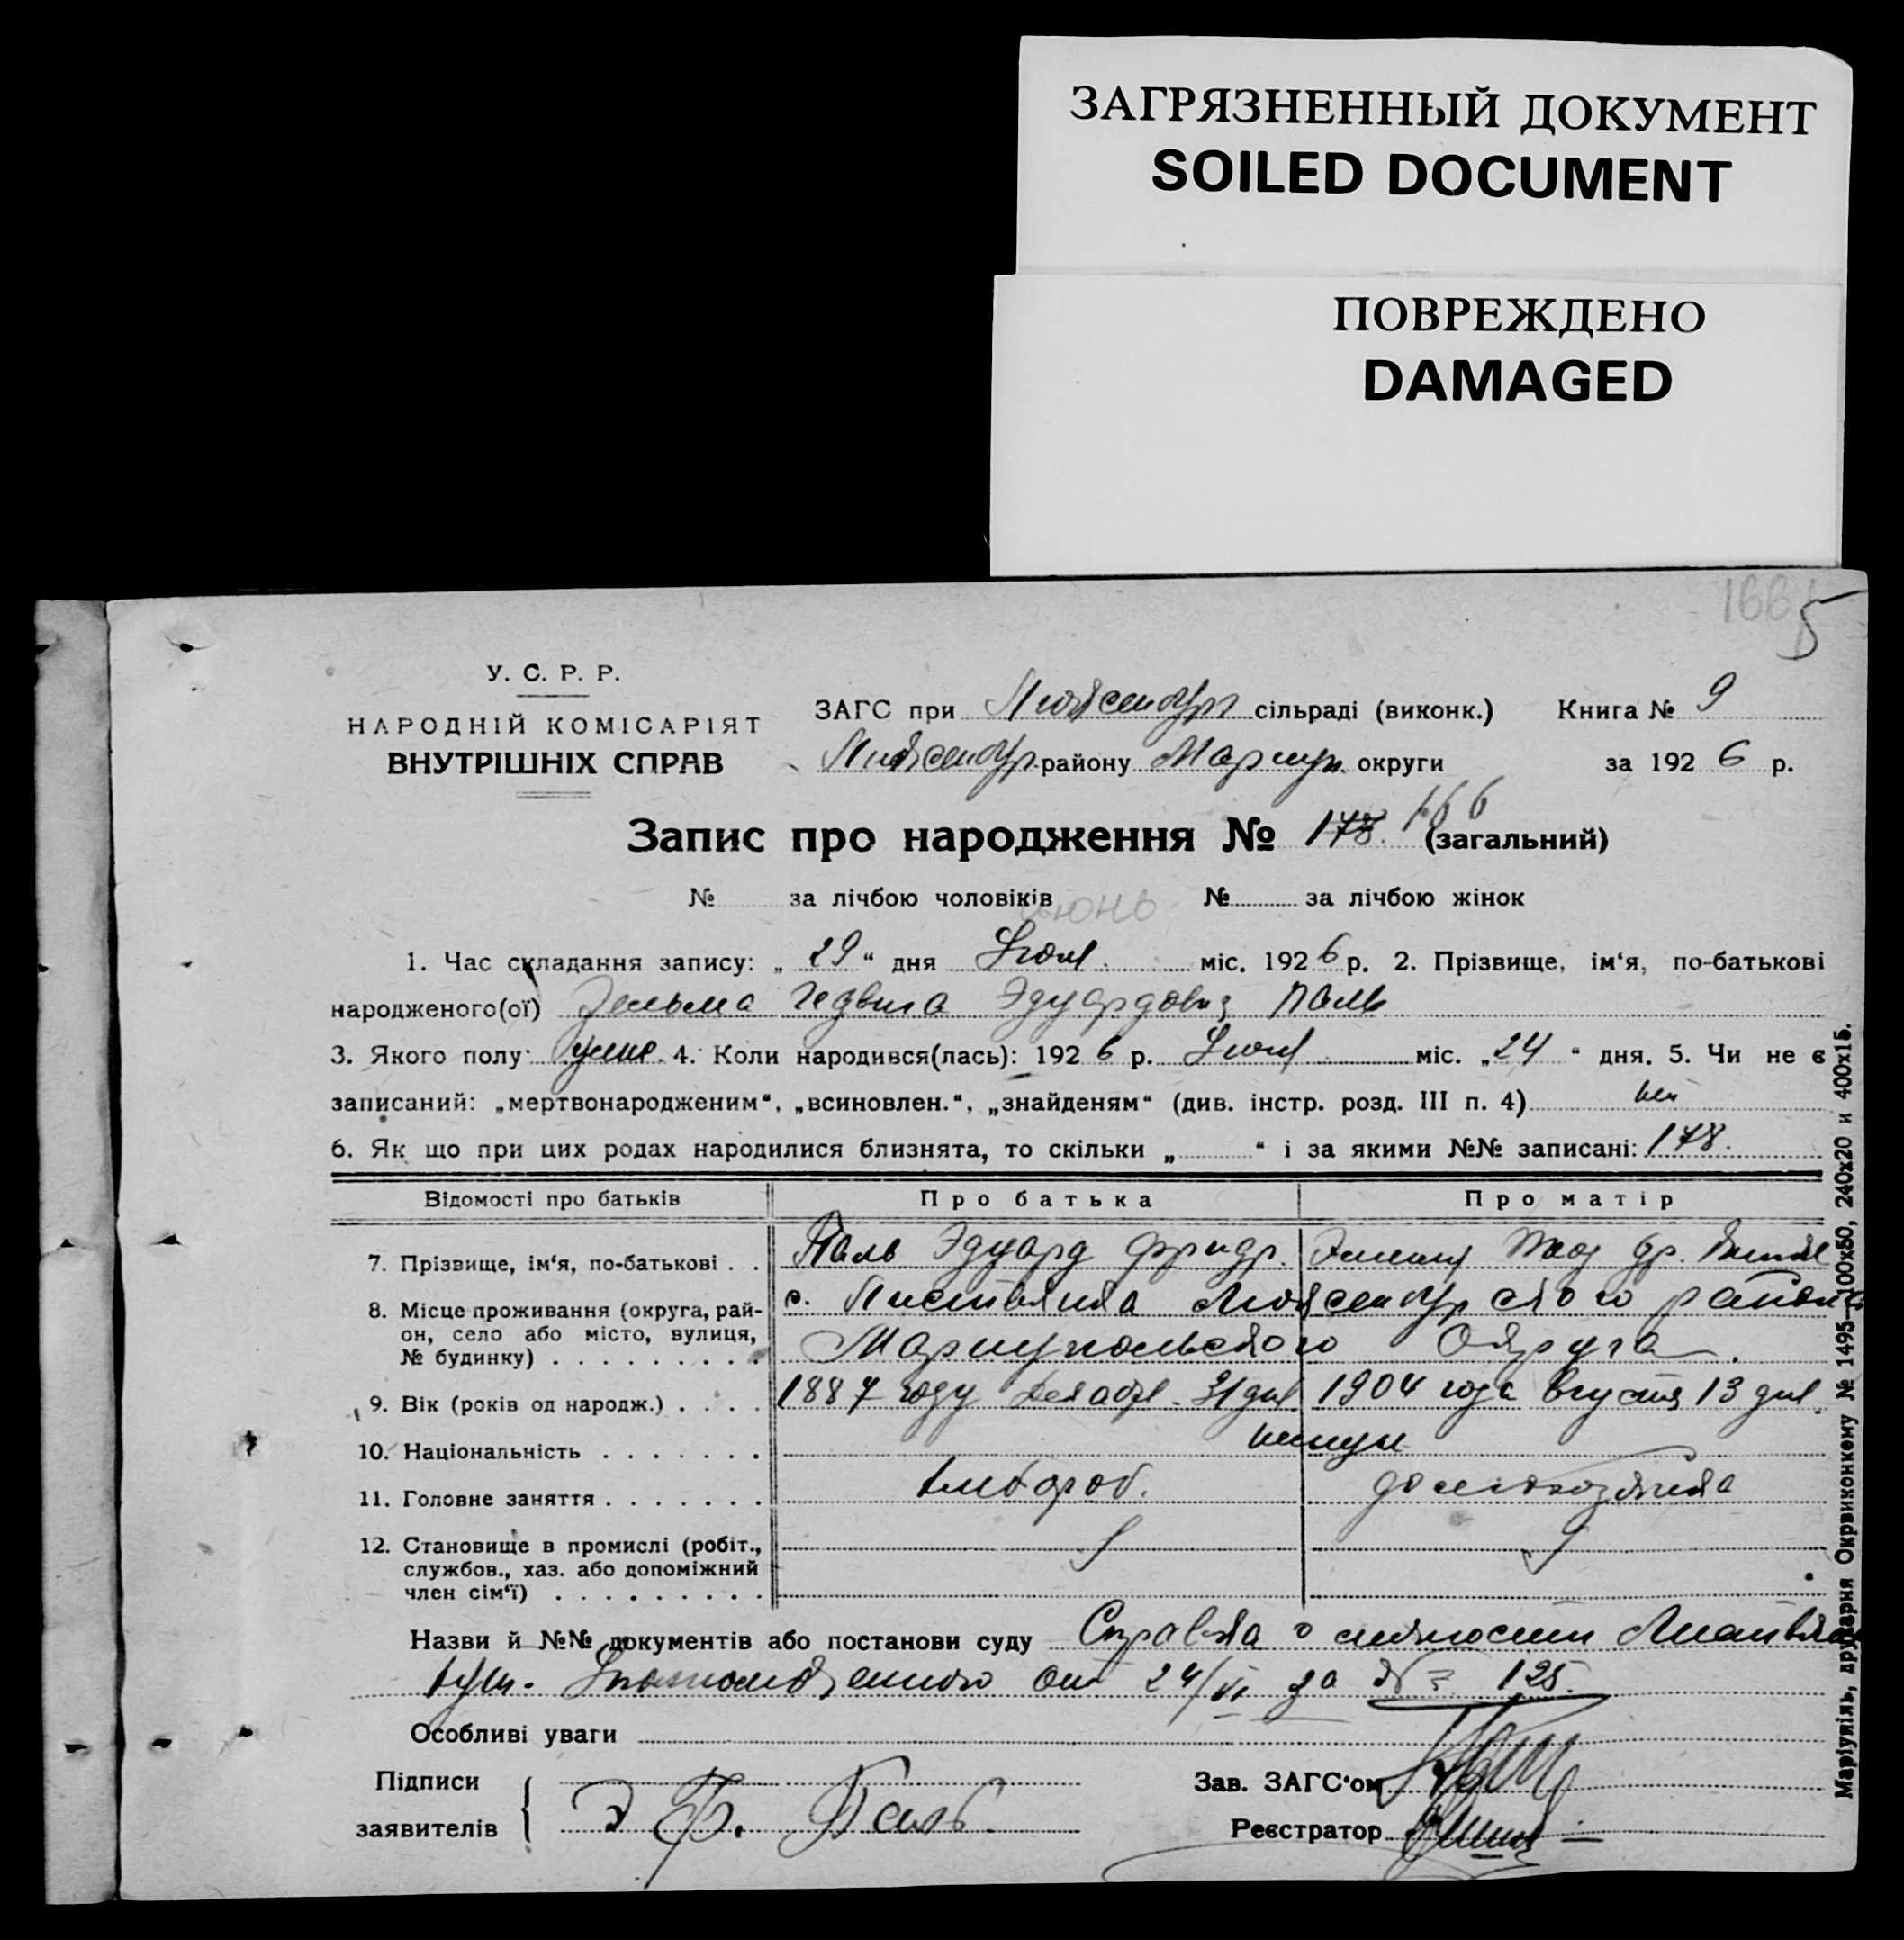 ЗАГРЯЗНЕННЫЙ ДОКУМЕНТ
SOILED DOCUMENT
ПОВРЕЖДЕНО
DAMAGED
166 5
У. С. Р. Р.
НАРОДНІЙ КОМІСАРІЯТ
ВНУТРІШНІХ СПРАВ
ЗАГС при Люксембург сільраді (виконк.) Книга № 9
Люксембур. району Мариуп. округи за 1926 р.
Запис про народження № 178. 166 (загальний)
№ за лічбою чоловіків № за лічбою жінок
июнь
1. Час складання запису: „ 29 “ дня міс. 1926 р. 2. Прізвище, ім‘я, по-батькові
народженого(ої) Гедвига Эдуардовна Паль
3. Якого полу: 4. Коли народився(лась): 1926 р. міс. „ 24 “ дня. 5. Чи не є
записаний: „мертвонародженим“, „всиновлен.“, „знайденям“ (див. інстр. розд. III п. 4)
6. Як що при цих родах народилися близнята, то скільки „ “ і за якими №№ записані: 178.
Відомості про батьків Про батька Про матір
7. Прізвище, ім‘я, по-батькові . . Паль Эдуард Фридр.
8. Місце проживання (округа, рай-
он, село або місто, вулиця,
№ будинку) . . . . . . . . .
с. Листвянка Люксембургского района
Мариупольского Округа.
9. Вік (років од народж.) . . . . 1887 году Декабр. 31 дня 1904 года Августа 13 дня.
10. Національність . . . . . . . немцы
11. Головне заняття . . . . . . . хлебороб. домохозяйка
12. Становище в промислі (робіт.,
службов., хаз. або допоміжний
член сім‘ї) . . . . . . . . .
Назви й №№ документів або постанови суду Справка о личности Листвянск
от 24/VI за № 125.
Особливі уваги
Підписи
заявителів
Э Ф. Паль.
Зав. ЗАГС‘ом
Реєстратор
Маріупіль, друкарня Окрвиконкому № 1495—100х50, 240х20 и 400х15.